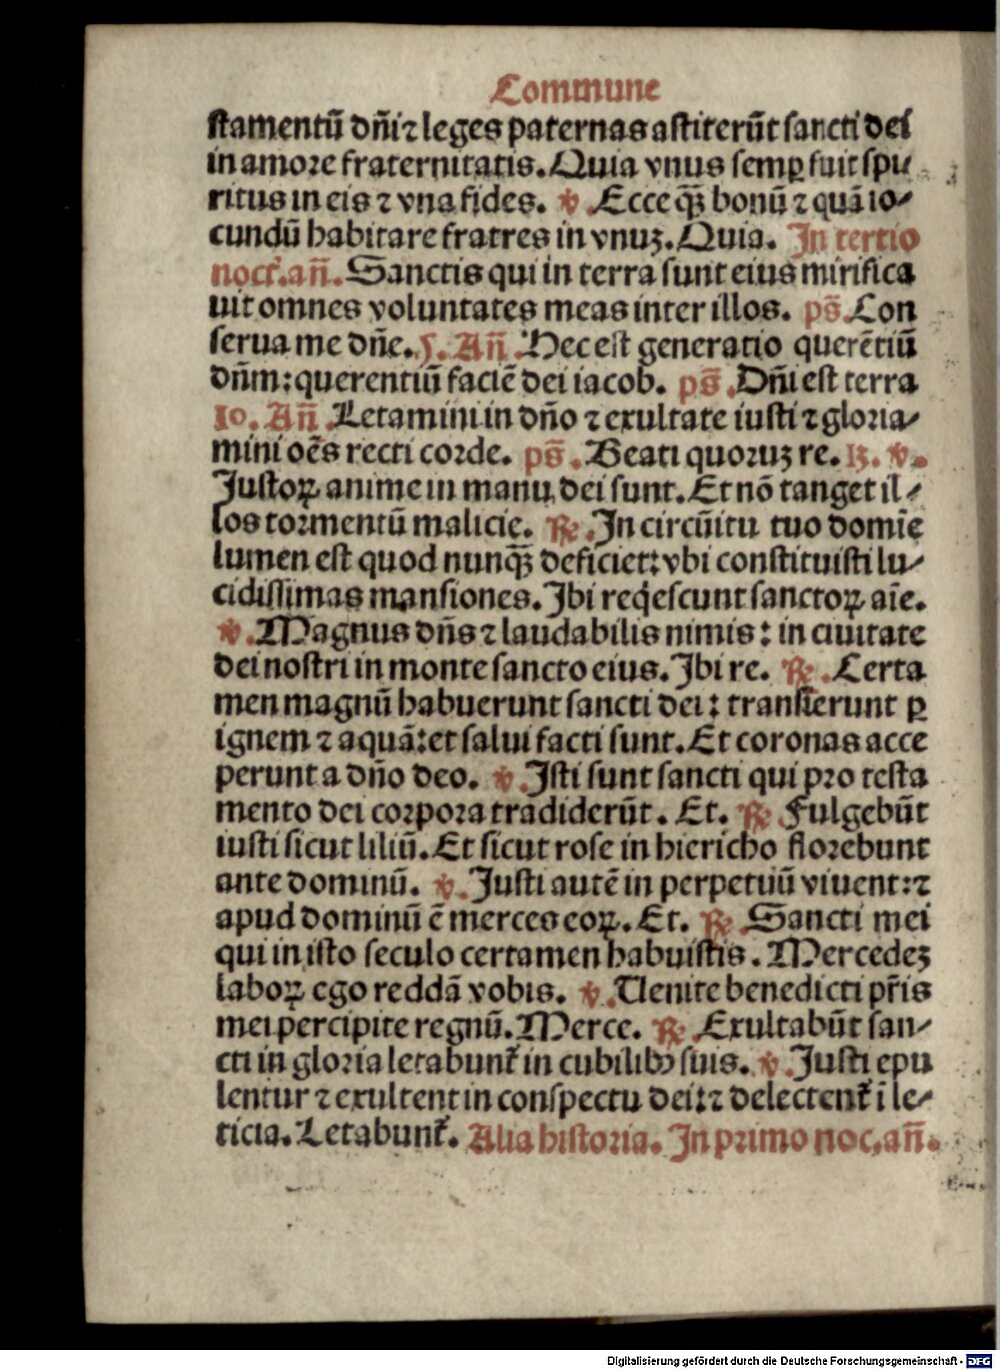 Commune
stamentū dn̄i ⁊ leges paternas astiterūt sancti dei
in amore fraternitatis. Quia vnus semꝑ fuit spi⸗
ritus in eis ⁊ vna fides. ℣. Ecce qȝ̄ bonū ⁊ quā io⸗
cundū habitare fratres in vnuȝ. Quia. In tertio
noct̓. an̄. Sanctis qui in terra sunt eius mirifica
uit omnes voluntates meas inter illos. ps̄. Con
serua me dn̄e. 5. An̄. Hec est generatio querētiū
dn̄m: querentiū faciē dei iacob. ps̄. Dn̄i est terra
10. An̄. Letamini in dn̄o ⁊ exultate iusti ⁊ gloria⸗
mini oēs recti corde. ps̄. Beati quoruȝ re. 13. ℣.
Justoꝝ anime in manu dei sunt. Et nō tanget il⸗
los tormentū malicie. ℟. In circūitu tuo domīe
lumen est quod nunqȝ̄ deficiet: vbi constituisti lu⸗
cidissimas mansiones. Ibi req̇escunt sanctoꝝ aīe.
℣. Magnus dn̄s ⁊ laudabilis nimis: in ciuitate
dei nostri in monte sancto eius. Ibi re. ℟. Certa
men magnū habuerunt sancti dei: transierunt ꝑ
ignem ⁊ aquā: et salui facti sunt. Et coronas acce
perunt a dn̄o deo. ℣. Isti sunt sancti qui pro testa
mento dei corpora tradiderūt. Et. ℟. Fulgebūt
iusti sicut liliū. Et sicut rose in hiericho florebunt
ante dominū. ℣. Justi autē in perpetuū viuent: ⁊
apud dominū ē merces eoꝝ. Et. ℟. Sancti mei
qui in isto seculo certamen habuistis. Mercedeȝ
laboꝝ ego reddā vobis. ℣. Uenite benedicti pr̄is
mei percipite regnū. Merce. ℟. Exultabūt san⸗
cti in gloria letabunt̓ in cubilibꝰ suis. ℣. Justi epu
lentur ⁊ exultent in conspectu dei: ⁊ delectent̓ ī le⸗
ticia. Letabunt̓. Alia historia. In primo noc. an̄.
Digitalisierung gefördert durch die Deutsche Forschungsgemeinschaft - DFG